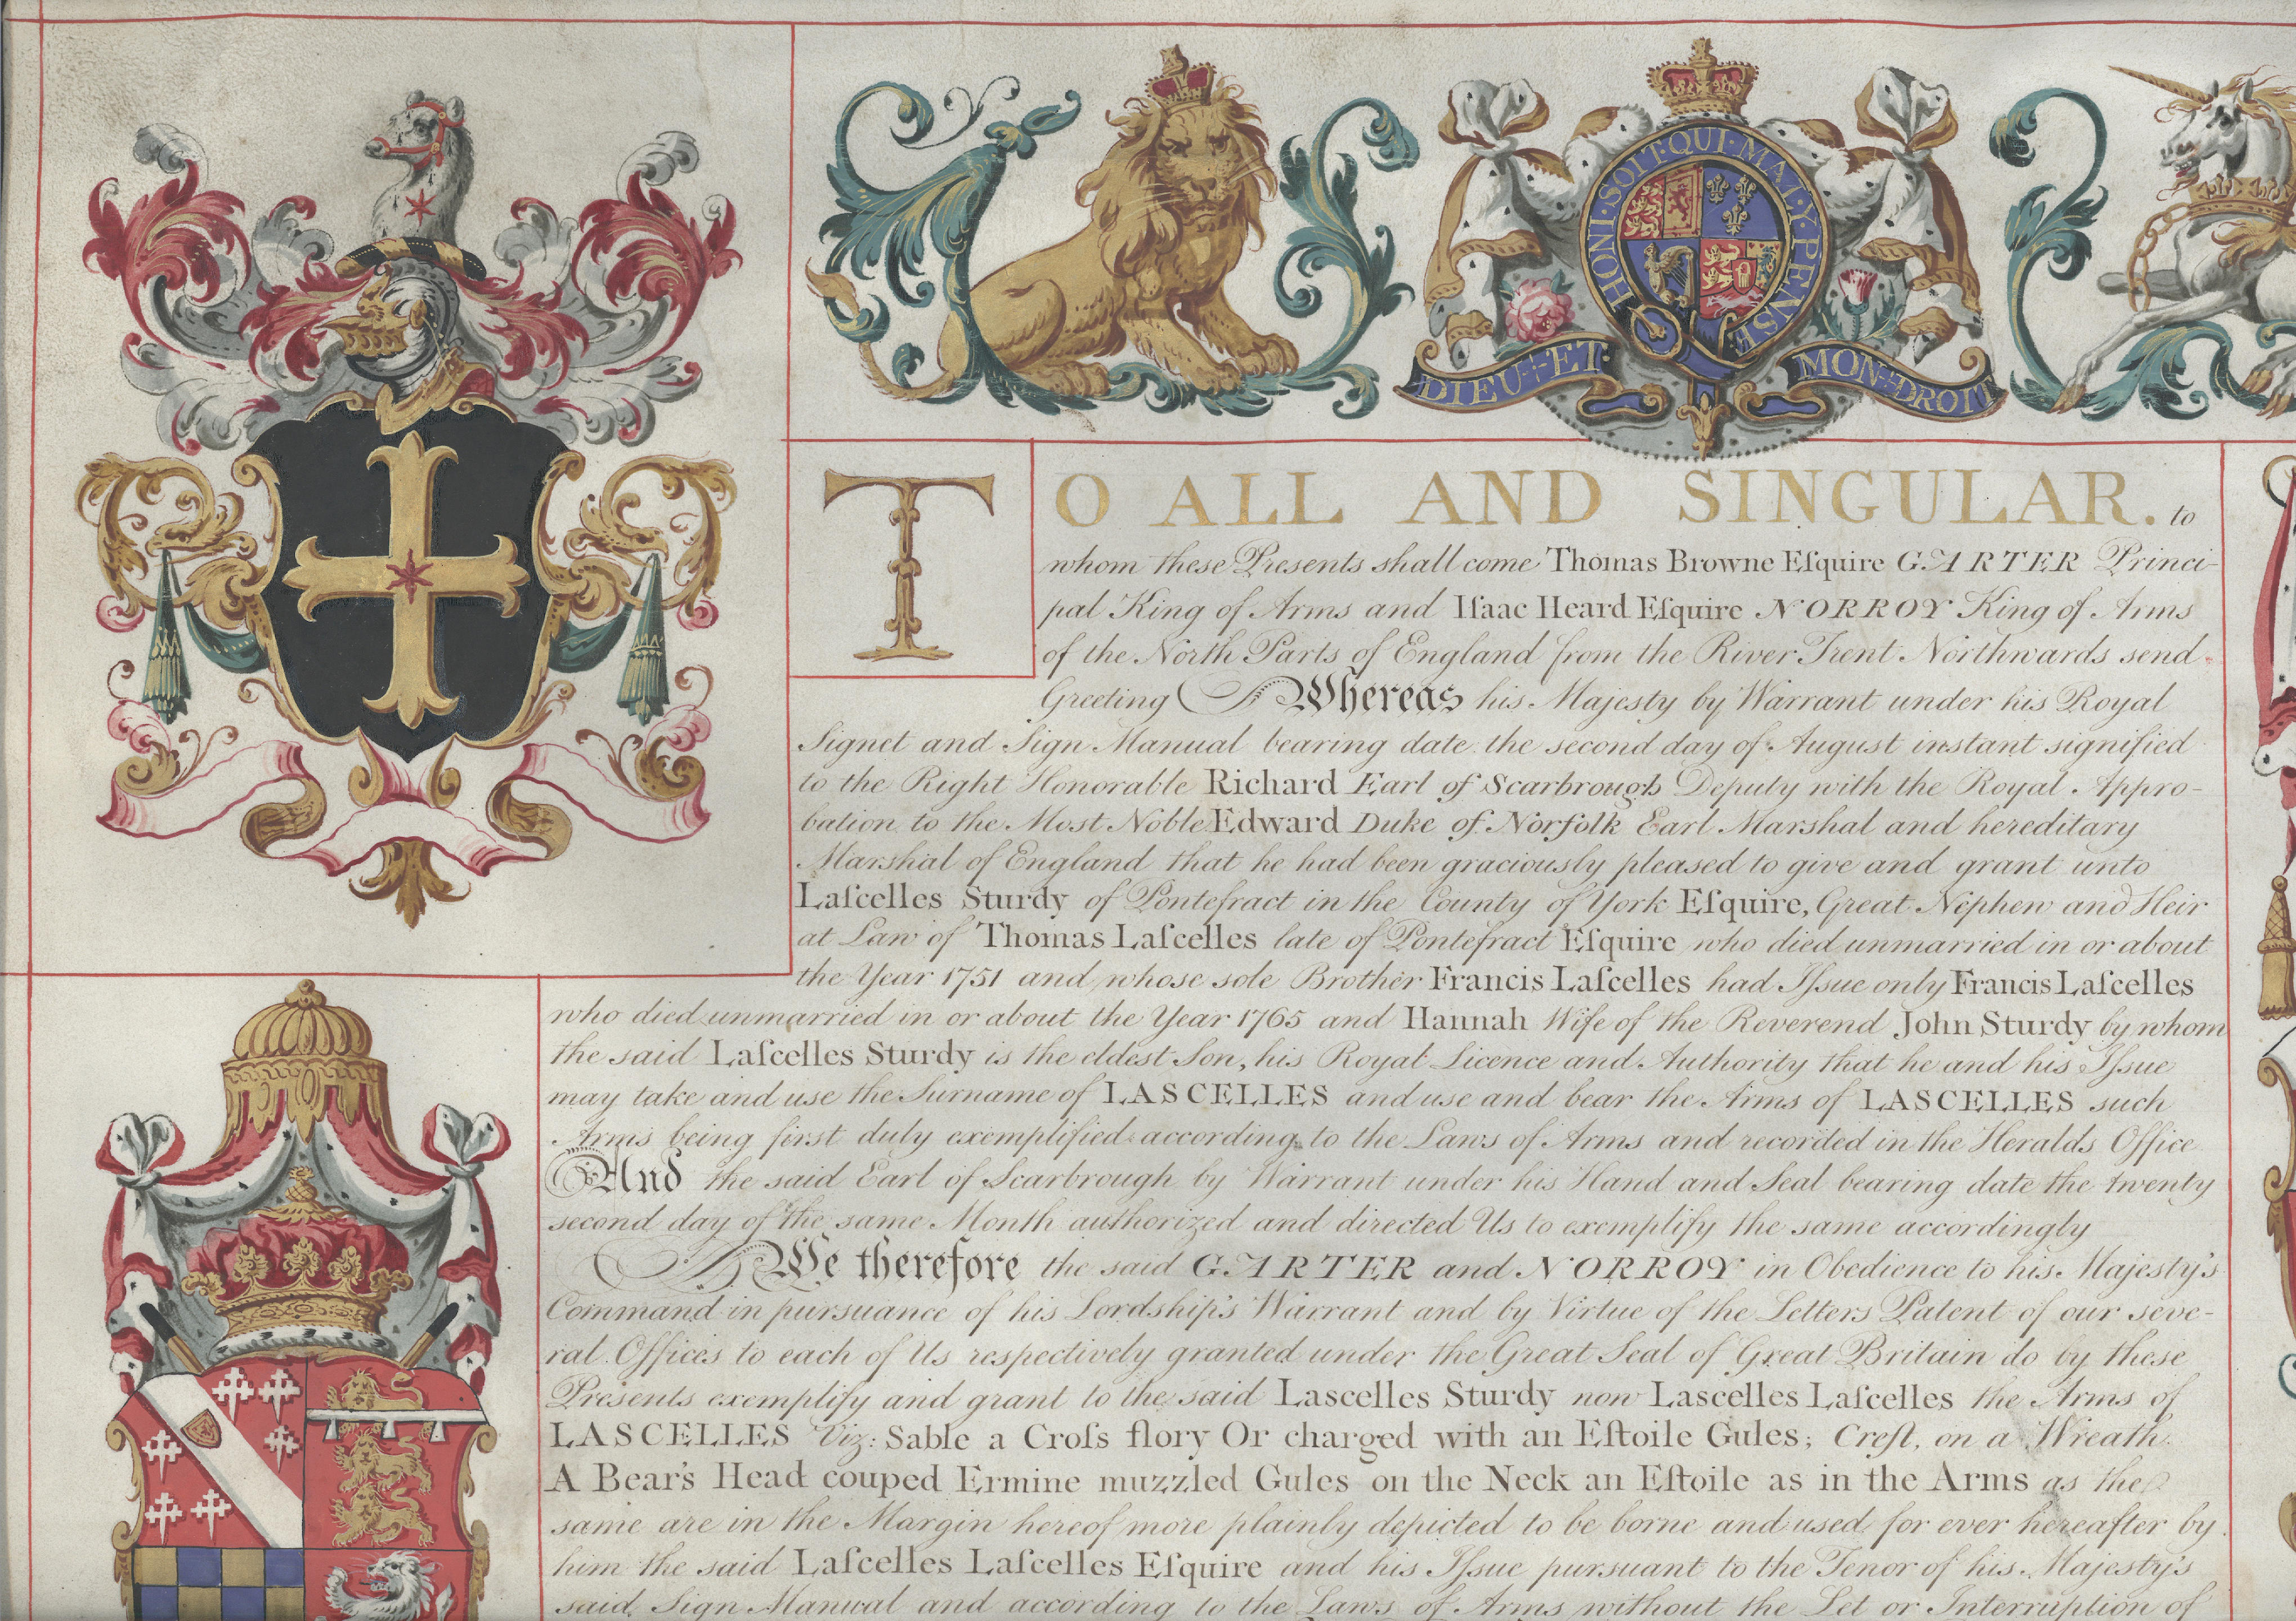 HONI·SOIT·QUI·MAL·Y·PENSE
DIEU·ET· MON·DROIT
TO ALL AND SINGULAR. to
whom these Presents shall come Thomas Browne Eſquire GARTER Princi-
pal King of Arms and Iſaac Heard Eſquire NORROY King of Arms
of the North Parts of England from the River Trent Northwards send
Greeting Whereas his Majesty by Warrant under his Royal
Signet and Sign Manual bearing date the second day of August instant signified
to the Right Honorable Richard Earl of Scarbrough Deputy with the Royal Appro-
bation to the Most Noble Edward Duke of Norfolk Earl Marshal and hereditary
Marshal of England that he had been graciously pleased to give and grant unto
Laſcelles Sturdy of Pontefract in the County of York Eſquire, Great Nephew and Heir
at Law of Thomas Laſcelles late of Pontefract Eſquire who died unmarried in or about
the Year 1751 and whose sole Brother Francis Laſcelles had Iſsue only Francis Laſcelles
who died unmarried in or about the Year 1765 and Hannah Wife of the Reverend John Sturdy by whom
the said Laſcelles Sturdy is the eldest Son, his Royal Licence and Authority that he and his Iſsue
may take and use the Surname of LASCELLES and use and bear the Arms of LASCELLES such
Arms being first duly exemplified according to the Laws of Arms and recorded in the Heralds Office
And the said Earl of Scarbrough by Warrant under his Hand and Seal bearing date the twenty
second day of the same Month authorized and directed Us to exemplify the same accordingly
We therefore the said GARTER and NORROY in Obedience to his Majesty's
Command in pursuance of his Lordship's Warrant and by Virtue of the Letters Patent of our seve-
ral Offices to each of Us respectively granted under the Great Seal of Great Britain do by these
Presents exemplify and grant to the said Lascelles Sturdy now Lascelles Laſcelles the Arms of
LASCELLES Viz: Sable a Croſs flory Or charged with an Eſtoile Gules; Creſt, on a Wreath
A Bear's Head couped Ermine muzzled Gules on the Neck an Eſtoile as in the Arms as the
same are in the Margin hereof more plainly depicted to be borne and used for ever hereafter by
him the said Laſcelles Laſcelles Eſquire and his Iſsue pursuant to the Tenor of his Majesty's
said Sign Manual and according to the Laws of Arms without the Let or Interruption of